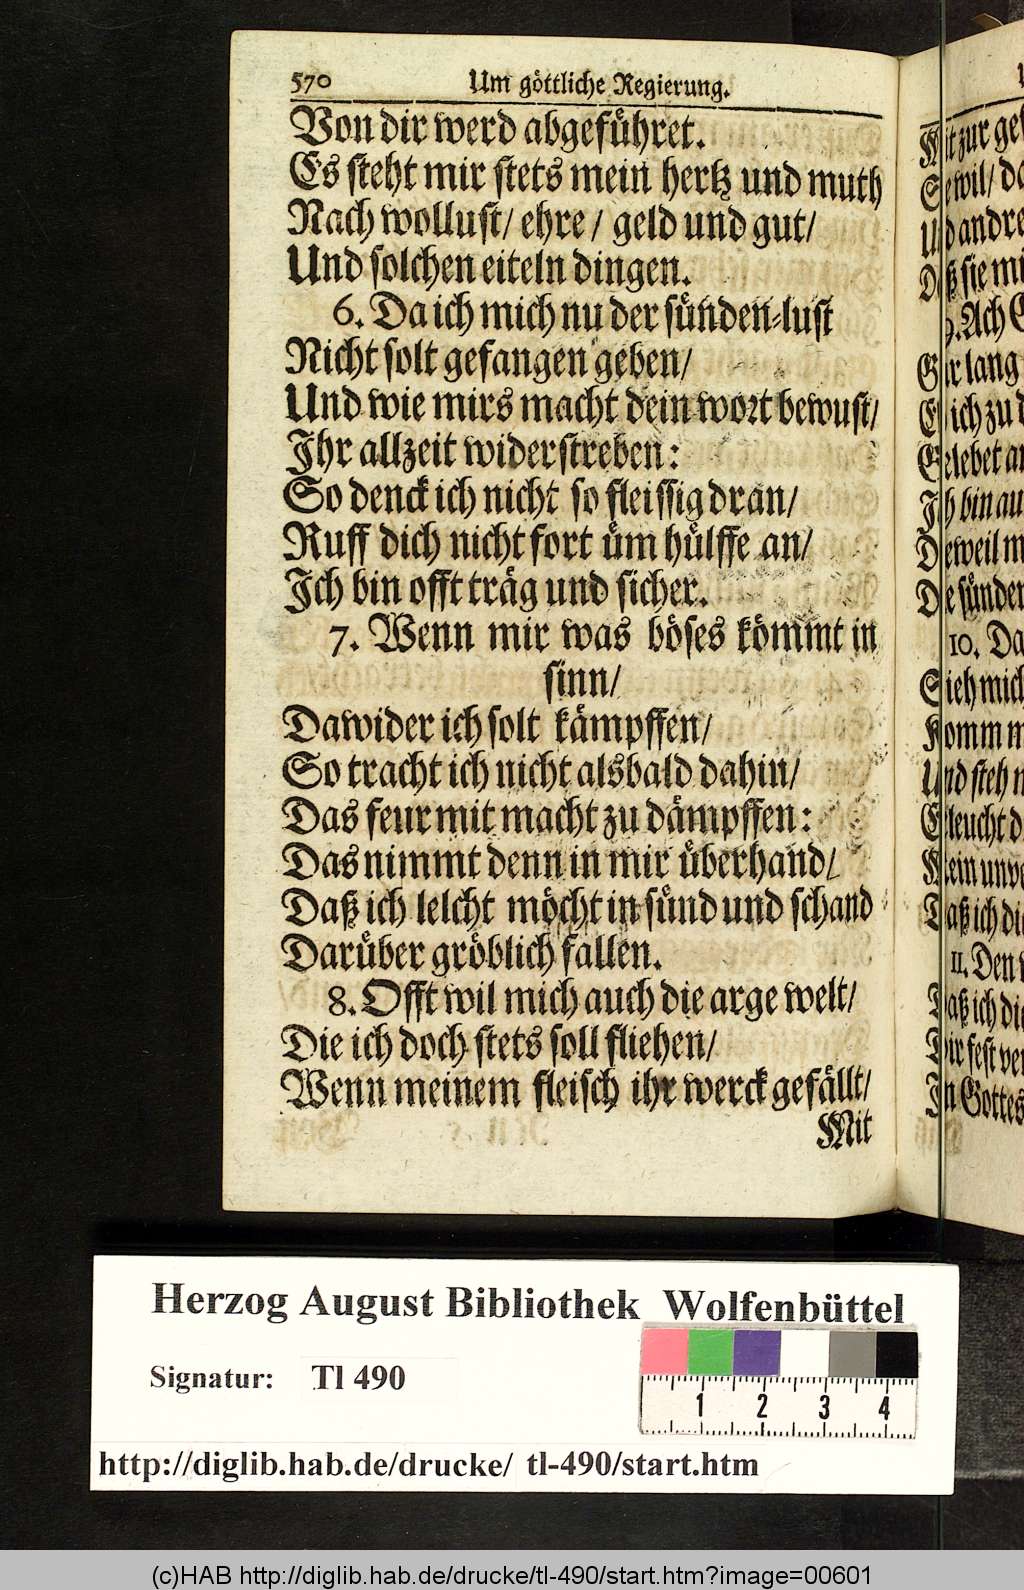 570 Um göttliche Regierung.
Von dir werd abgeführet.
Es steht mir stets mein hertz und muth
Nach wollust/ ehre/ geld und gut/
Und solchen eiteln dingen.
6. Da ich mich nu der sünden-lust
Nicht solt gefangen geben/
Und wie mirs macht dein wort bewust/
Ihr allzeit widerstreben:
So denck ich nicht so fleissig dran/
Ruff dich nicht fort üm hülffe an/
Ich bin offt träg und sicher.
7. Wenn mir was böses kömmt in
sinn/
Dawider ich solt kämpffen/
So tracht ich nicht alsbald dahin/
Das feur mit macht zu dämpffen:
Das nimmt denn in mir überhand/
Daß ich leicht möcht in sünd und schand
Darüber gröblich fallen.
8. Offt wil mich auch die arge welt/
Die ich doch stets soll fliehen/
Wenn meinem fleisch ihr werck gefällt/
Mit
zur
wil/
andre
sie
9. Ach
lang
ich zu
bin
10. Da
mich
11. Den
ich
fest
Gottes
Herzog August Bibliothek Wolfenbüttel
Signatur: Tl 490
1 2 3 4
http://diglib.hab.de/drucke/ tl-490/start.htm
(c)HAB http://diglib.hab.de/drucke/tl-490/start.htm?image=00601